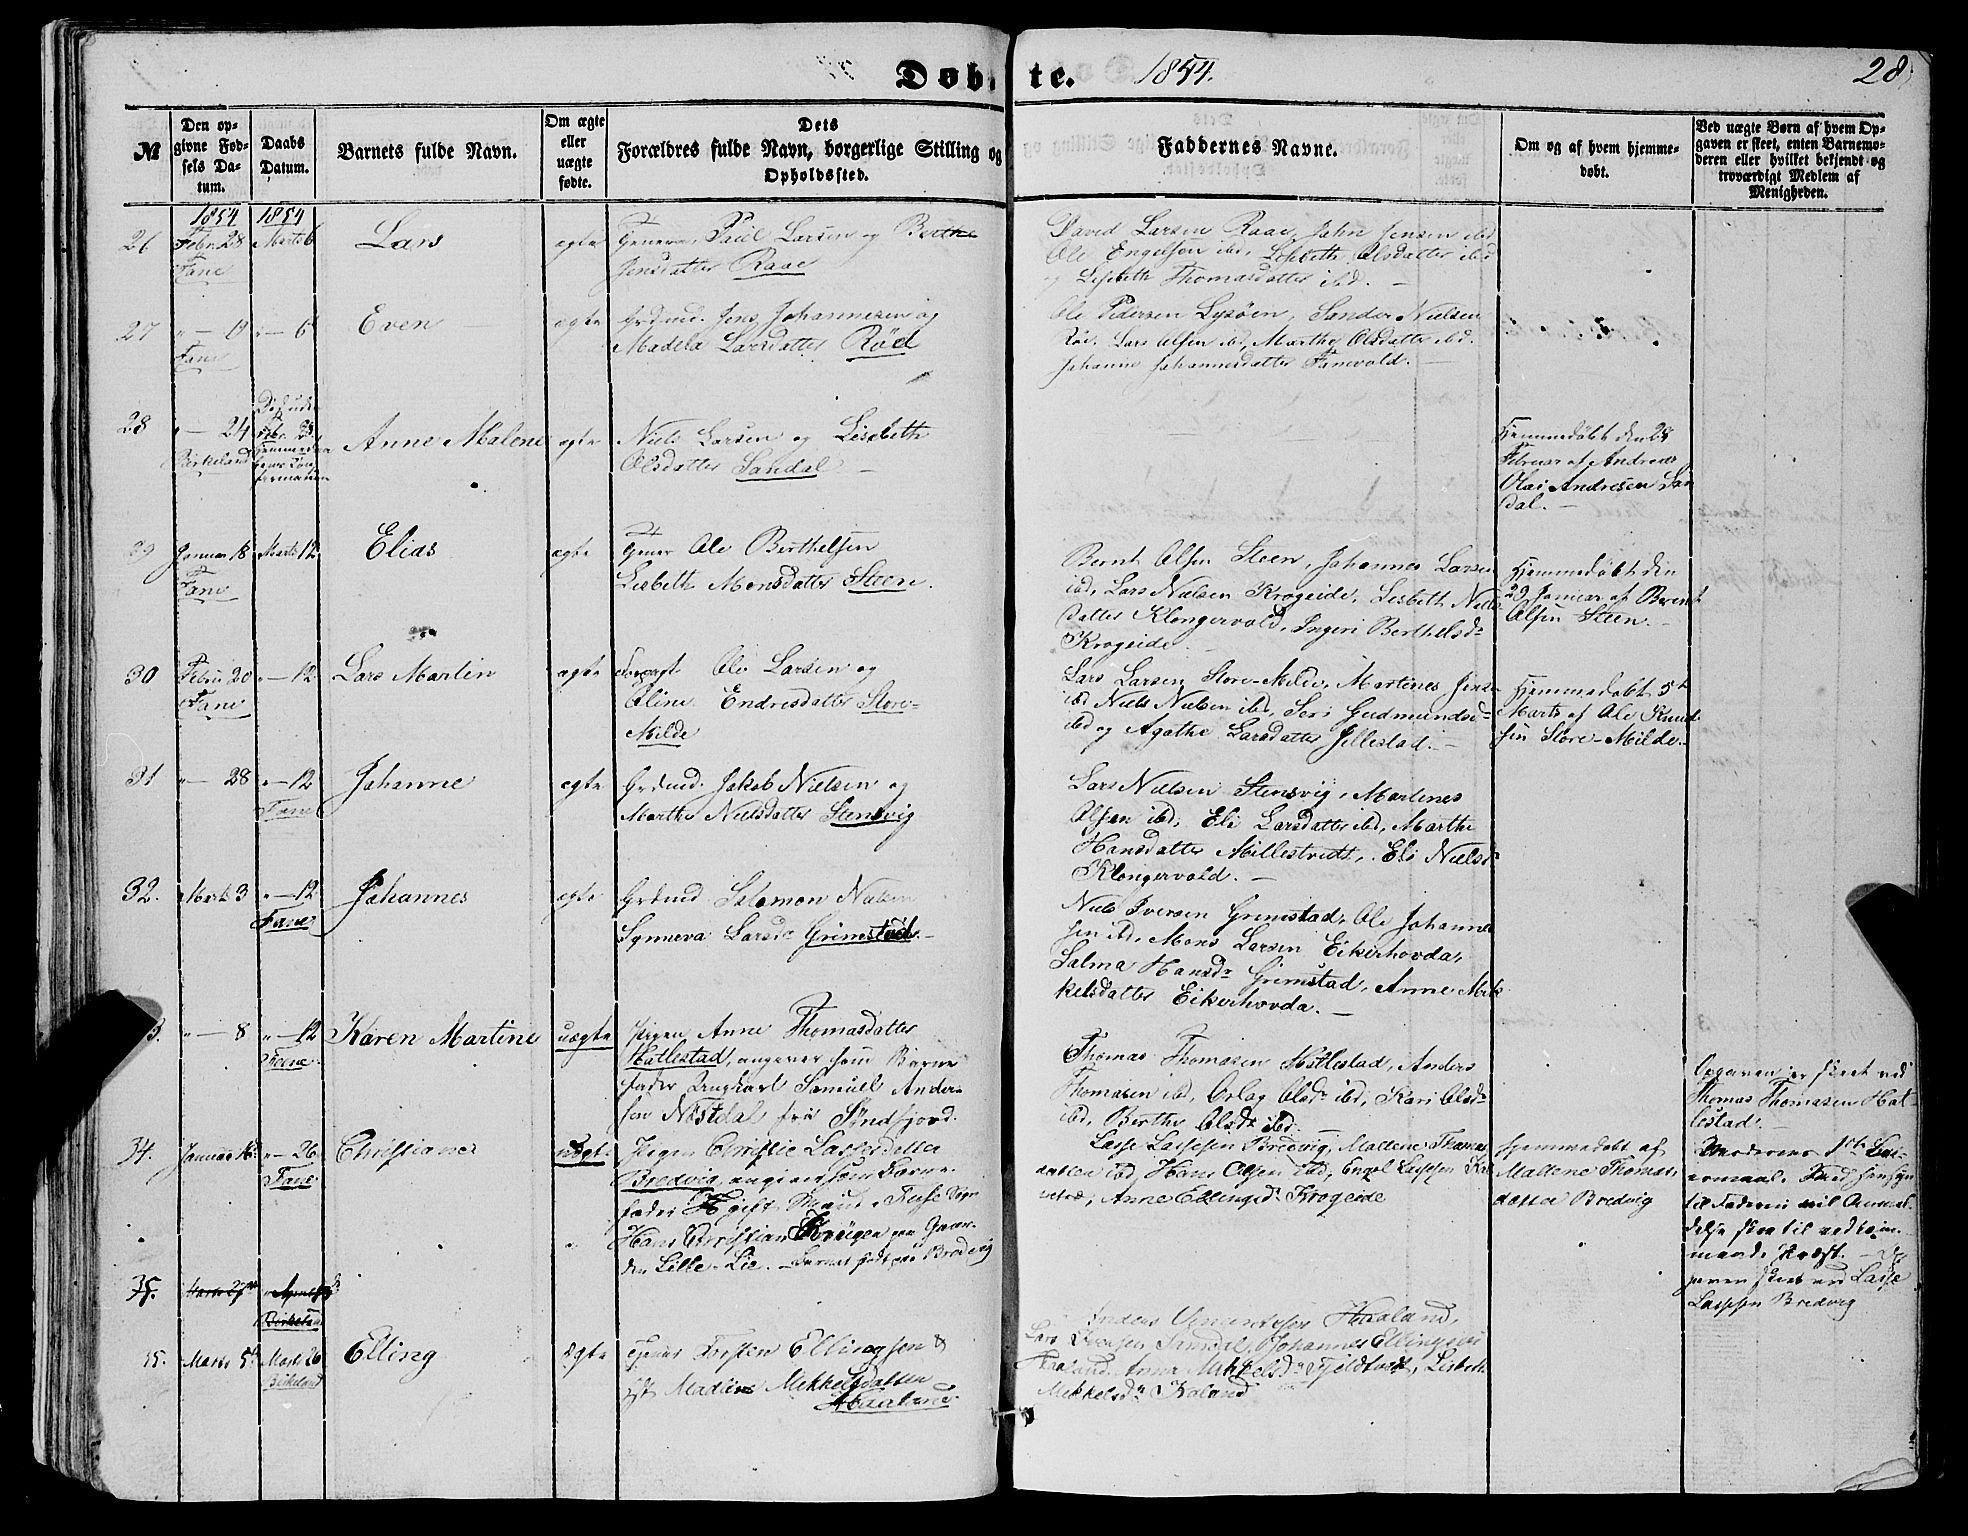 Døbte. 1854. 28
№
Den opgivne Fødsels Datum.
Daabs Datum.
Barnets fulde Navn.
Om ægte eller uægte fødte.
Dets Forældres fulde Navn, borgerlige Stilling og Opholdssted.
Faddernes Navne.
Om og af hvem hjemmedøbt.
Ved uægte Børn af hvem Opgaven er skeet, enten Barnemoderen eller hvilket bekjendt og troværdigt Medlem af Menigheden.
1854 1854
26 Febr. 28 Marts 6 Lars ægte Paul Larsen og Berthe
Fane Jensdatter Raae
David Larsen Raae, John Jensen ibd
Ole Engelsen ibd, Lisbeth Olsdatter ibd
og Lisbeth Thomasdatter ibd. —
27 " — 19 " — 6 Even ægte Grdmd. Jens Johannesen og
Fane Madela Larsdatter Röd
Ole Pedersen Lysöen, Sander Nielsen
Röd, Lars Olsen ibd, Marthe Olsdatter ibd.
Johanne Johannesdatter Fanevold. —
28 " — 24 Febr. 28 Anne Malene ægte Niels Larsen og Lisebeth
Birkeland Olsdatter Sandal —
Hjemmedöbt den 28
Februar af Andreas
Olai Andresen San
dal. —
29 Januar 18 Marts 12 Elias ægte Ole Berthelsen
Fane Lisbeth Monsdatter Steen.
Bernt Olsen Steen, Johannes Larsen
ibd, Lars Nielsen Krogeide, Lisbeth Niels
datter Klongervold, Ingeri Berthelsd.
Krogeide. —
Hjemmedöbt den
29 Januar af Bernt
Olsen Steen. —
30 Febru 20 " — 12 Lars Martin ægte Ole Larsen og
Fane Oline Endresdatter Store-
Milde
Lars Larsen Store-Milde, Martines Jens
ibd Niels Nielsen ibd, Seri Gudmundsd
ibd og Agathe Larsdatter Jillestad. —
Hjemmedöbt 5te
Marts af Ole Knud
sen Store-Milde. —
31 " — 28 " — 12 Johanne ægte Grdmd. Jakob Nielsen og
Fane Marthe Nielsdatter Stensvig
Lars Nielsen Stensvig, Martines
Olsen ibd, Eli Larsdatter ibd, Marthe
Hansdatter Millestvedt, Eli Nielsd
Klongervold. —
32. Marts 3 " — 12 Johannes ægte Grdmd Salomon Nielsen
Fane Synneva Larsd. Grimstad. —
Niels Iversen Grimstad, Ole Johanne
sen ibd, Mons Larsen Eikerhovda,
Salma Hansd. Grimstad, Anne Mik
kelsdatter Eikerhovda. —
" — 8 " — 12 Karen Martine uægte Pigen Anne Thomasdatter
Fane Hatlestad, angiver som Barne
fader Ungkarl Samuel Ander
sen Nästdal fra Söndfjord.
Thomas Thomasen Hatlestad, Anders
Thomasen ibd, Orlag Olsd. ibd, Kari Olsd
ibd, Berthe Olsd. ibd.
Opgaven er skeet ved
Thomas Thomasen Hat
lestad. —
34. Januar " — 26 Christiane uægte Pigen Christie Lassesdatter
Fane Bredvig, angiver som Barne
fader gift Mand
Hans Christian paa Gaar
den Lille-Lie. — Barnet födt paa Bredvig
Lasse Lassesen Bredvig, Mallene Thomas
datter ibd, Hans Olsen ibd, Engel Lassesen
Anne Ellingsd. Krogeide
hjemmedöbt af
Mallene Thomas
datter Bredvig
Moderens 1ste Lei-
ermaal.
til Faderen
til vedkom
mende Præst. — Op
gaven skeet ved Lasse
Lassesen Bredvig
35. Marts 27
Birkeland
35. Marts 5te Marts 26 Elling Ægte Torsten Ellingsen &
Birkeland Madlene Mikkelsdatter
Haaland.
Anders Haaland,
Lars Iversen Sandal, Johannes Ellingsen
Haaland, Anna Mikkelsd. Tveldtvedt, Lisbeth
Mikkelsd. Kaland